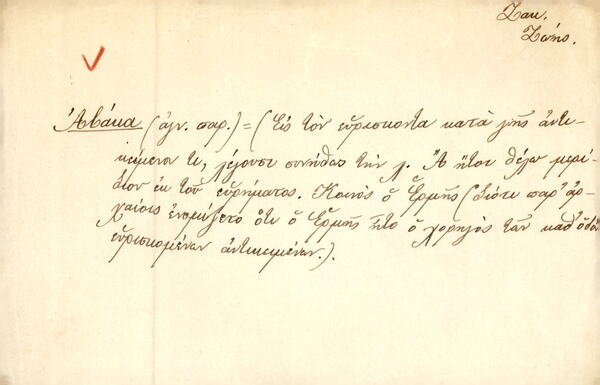 Ζακ.
Ζώης.
Ἀβάκα (ἀγν. παρ.) = (Εἰς τὸν εὑρίσκοντα κατὰ γῆς ἀντι-
κείμενον τι, λέγουσι συνήθως τὴν λ. Ἀ ἤτοι θέλω μερί-
διον ἐκ τοῦ εὑρήματος. Κοινὸς ὁ Ἑρμῆς (διότι παρ' ἀρ-
χαίοις ἐνομίζετο ὅτι ὁ Ἑρμῆς ἦτο ὁ χορηγὸς τῶν καθ' ὁδὸν
εὑρισκομένων ἀντικειμένων.).